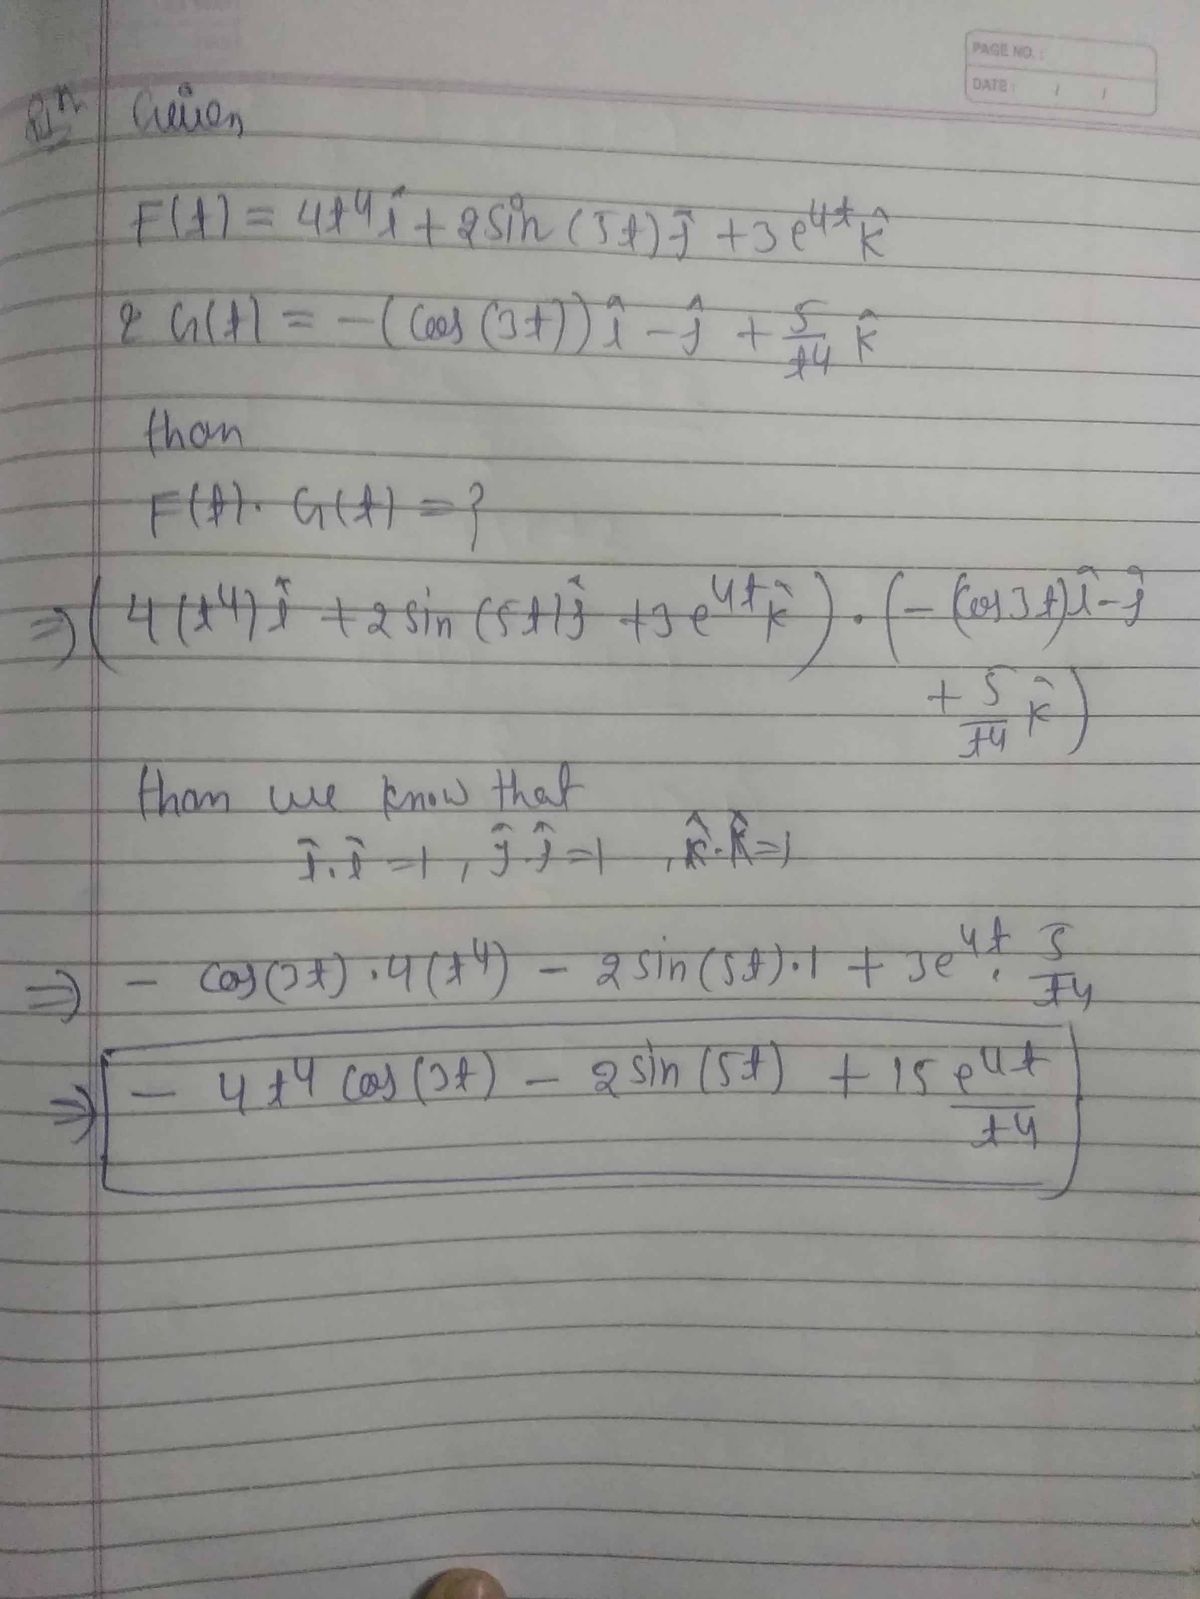 PAGE NO. :
DATE : / /
Given,
F(t) = 4t⁴î + 2sin(5t)ĵ + 3e^{4t}k̂
& G(t) = -(cos(3t))î - ĵ + 5/t⁴ k̂
than
F(t). G(t) = ?
⇒ (4(t⁴)î + 2sin(5t)ĵ + 3e^{4t}k̂) . (-(cos3t)î - ĵ
+ 5/t⁴ k̂)
than we know that
î.î = 1, ĵ.ĵ = 1, k̂.k̂ = 1
⇒ - cos(3t).4(t⁴) - 2sin(5t).1 + 3e^{4t}. 5/t⁴
⇒ - 4t⁴ cos(3t) - 2sin(5t) + 15 e^{4t}/t⁴